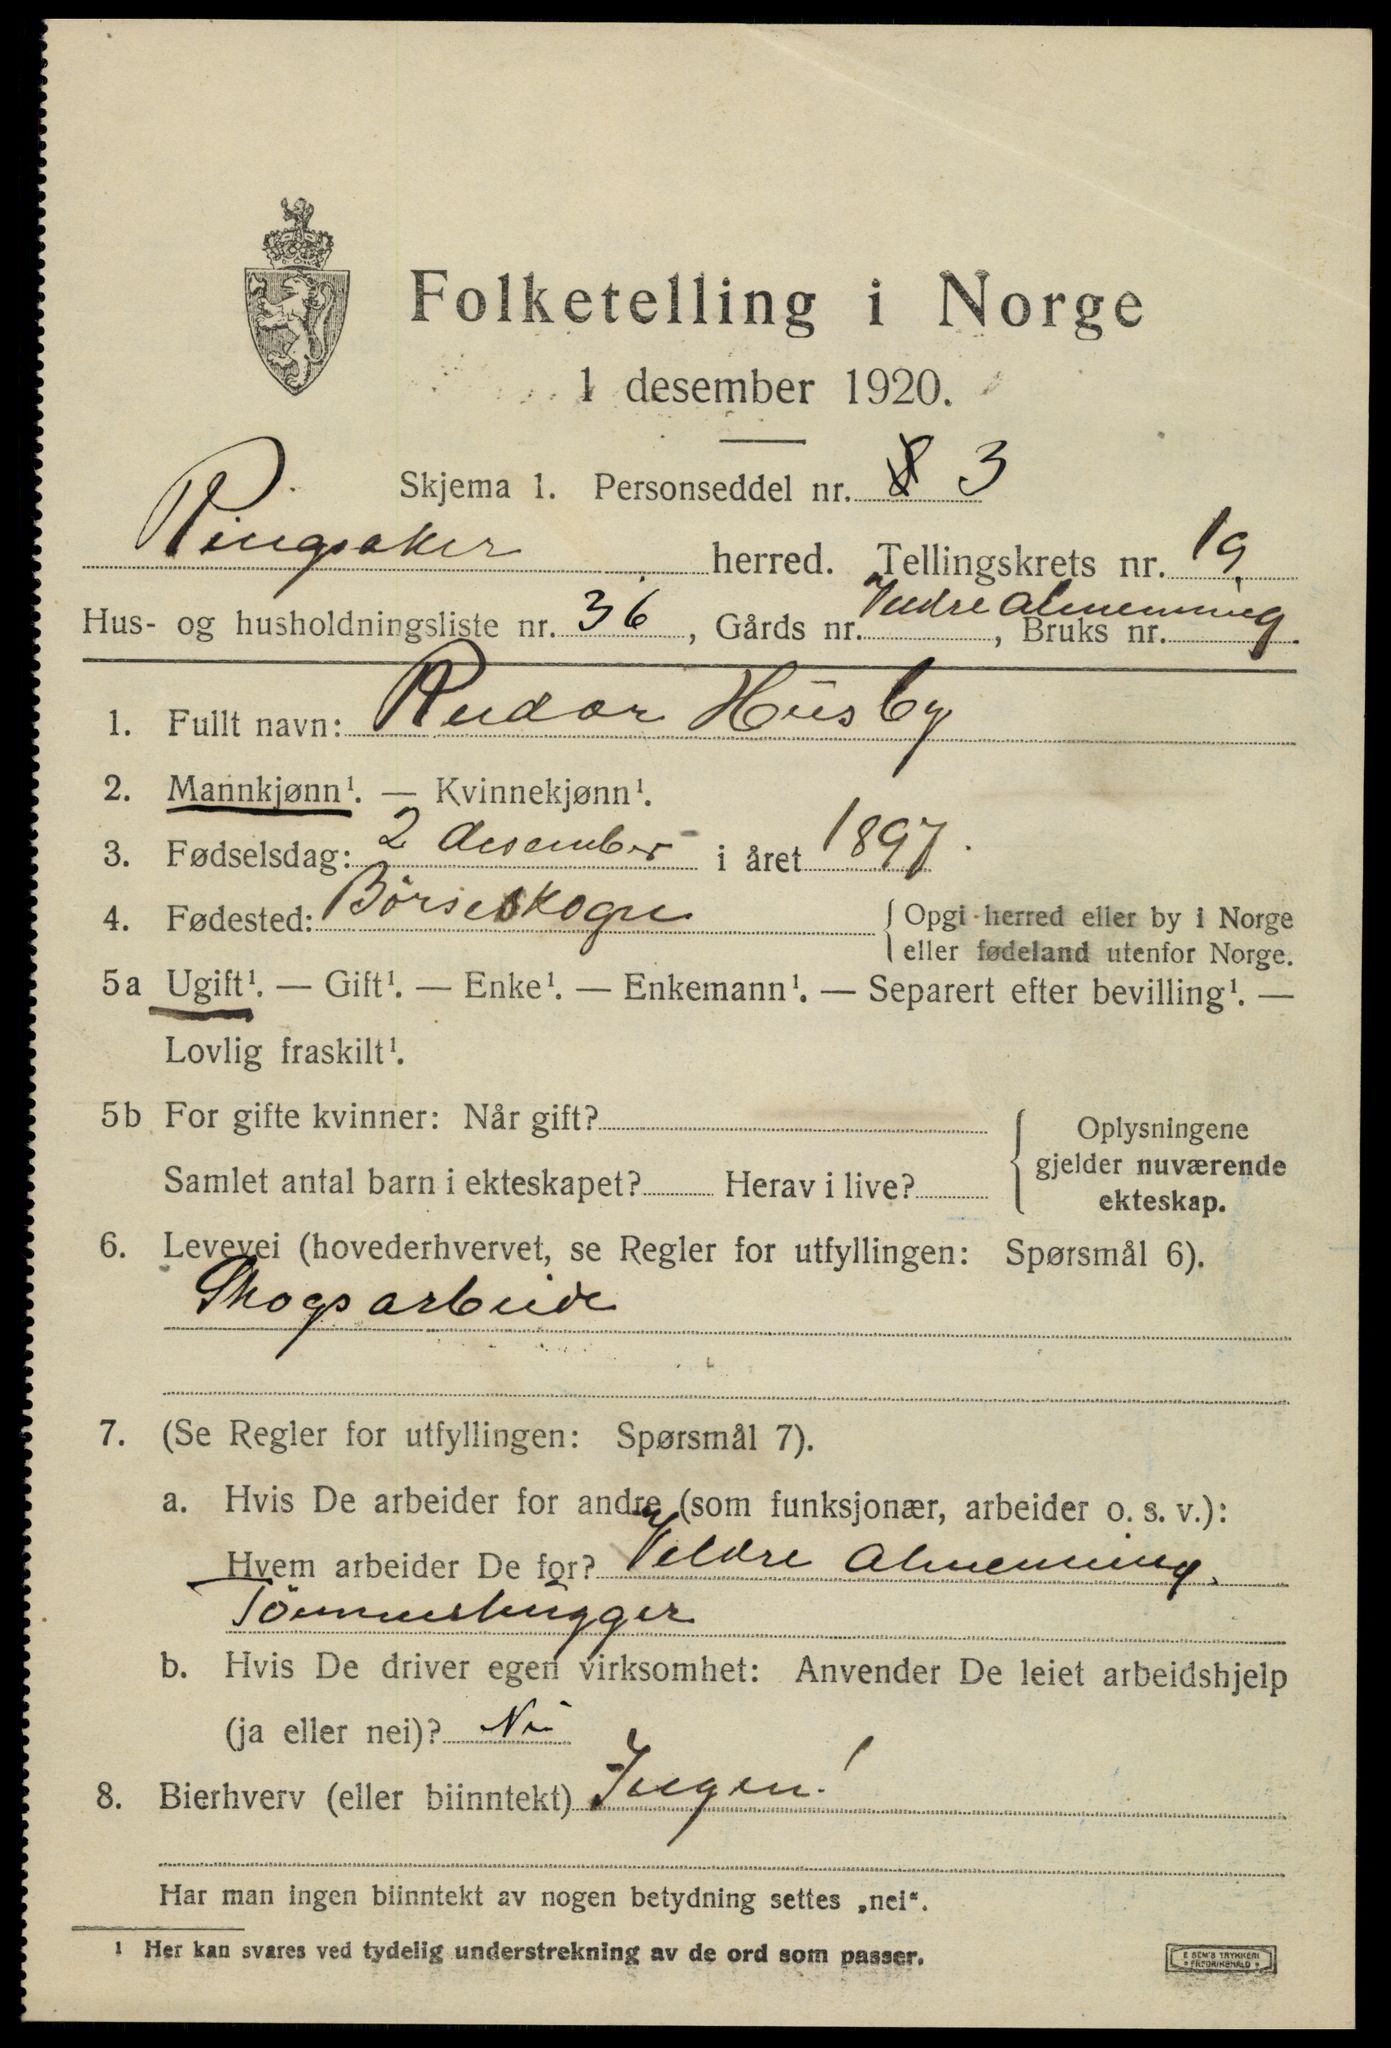 Folketelling i Norge
1 desember 1920.
Skjema 1. Personseddel nr. 8 3
Ringsaker herred. Tellingskrets nr. 19
Hus- og husholdningsliste nr. 36, Gårds nr. Veldre Almenning, Bruks nr.
1. Fullt navn: Rudor Husby
2. Mannkjønn¹. — Kvinnekjønn¹.
3. Fødselsdag: 2 desember i året 1897.
4. Fødested: Børseskogn { Opgi herred eller by i Norge
eller fødeland utenfor Norge.
5a Ugift¹. — Gift¹. — Enke¹. — Enkemann¹. — Separert efter bevilling¹. —
Lovlig fraskilt¹.
5b For gifte kvinner: Når gift? { Oplysningene
gjelder nuværende
ekteskap.
Samlet antal barn i ekteskapet? Herav i live?
6. Levevei (hovederhvervet, se Regler for utfyllingen: Spørsmål 6).
Skogsarbeide
7. (Se Regler for utfyllingen: Spørsmål 7).
a. Hvis De arbeider for andre (som funksjonær, arbeider o. s. v.):
Hvem arbeider De for? Veldre Almenning.
Tömmerhugger
b. Hvis De driver egen virksomhet: Anvender De leiet arbeidshjelp
(ja eller nei)? Nei
8. Bierhverv (eller biinntekt) Ingen!
Har man ingen biinntekt av nogen betydning settes „nei“.
1 Her kan svares ved tydelig understrekning av de ord som passer.
E SEM'S TRYKKERI
FREDRIKSHALD